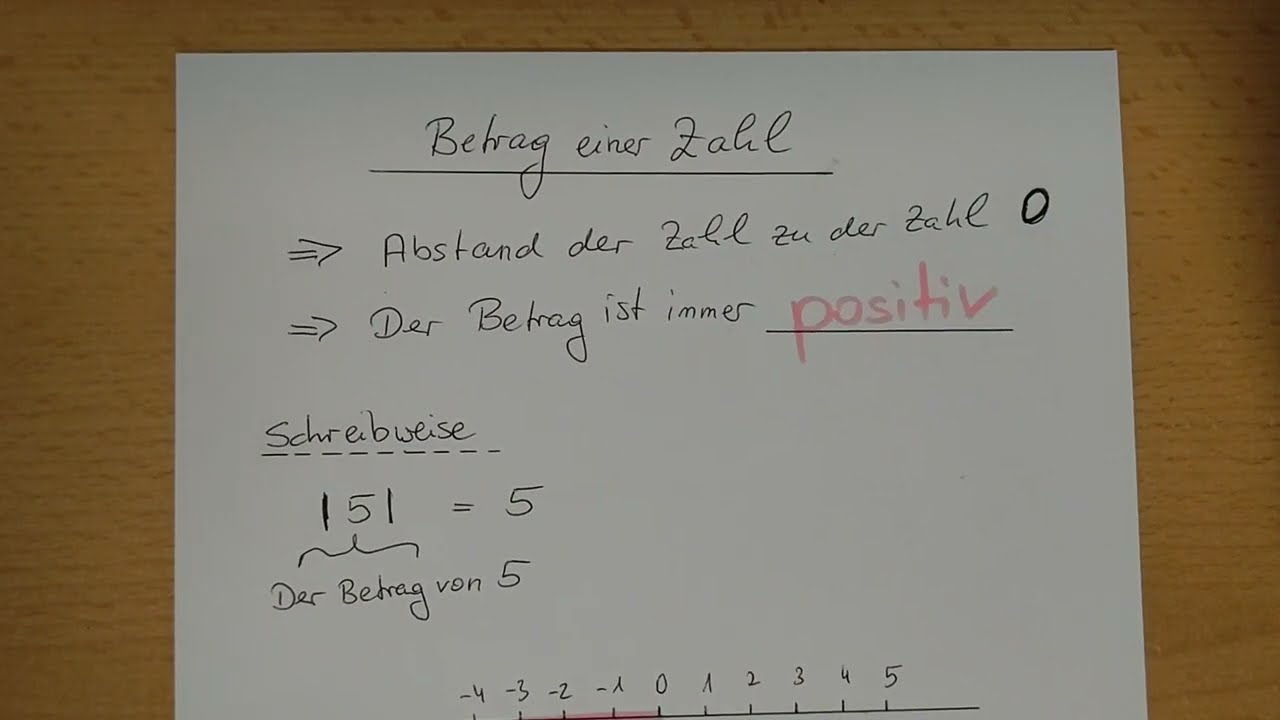 Betrag einer Zahl
=> Abstand der Zahl zu der Zahl 0
=> Der Betrag ist immer positiv
Schreibweise
|5| = 5
Der Betrag von 5
-4 -3 -2 -1 0 1 2 3 4 5